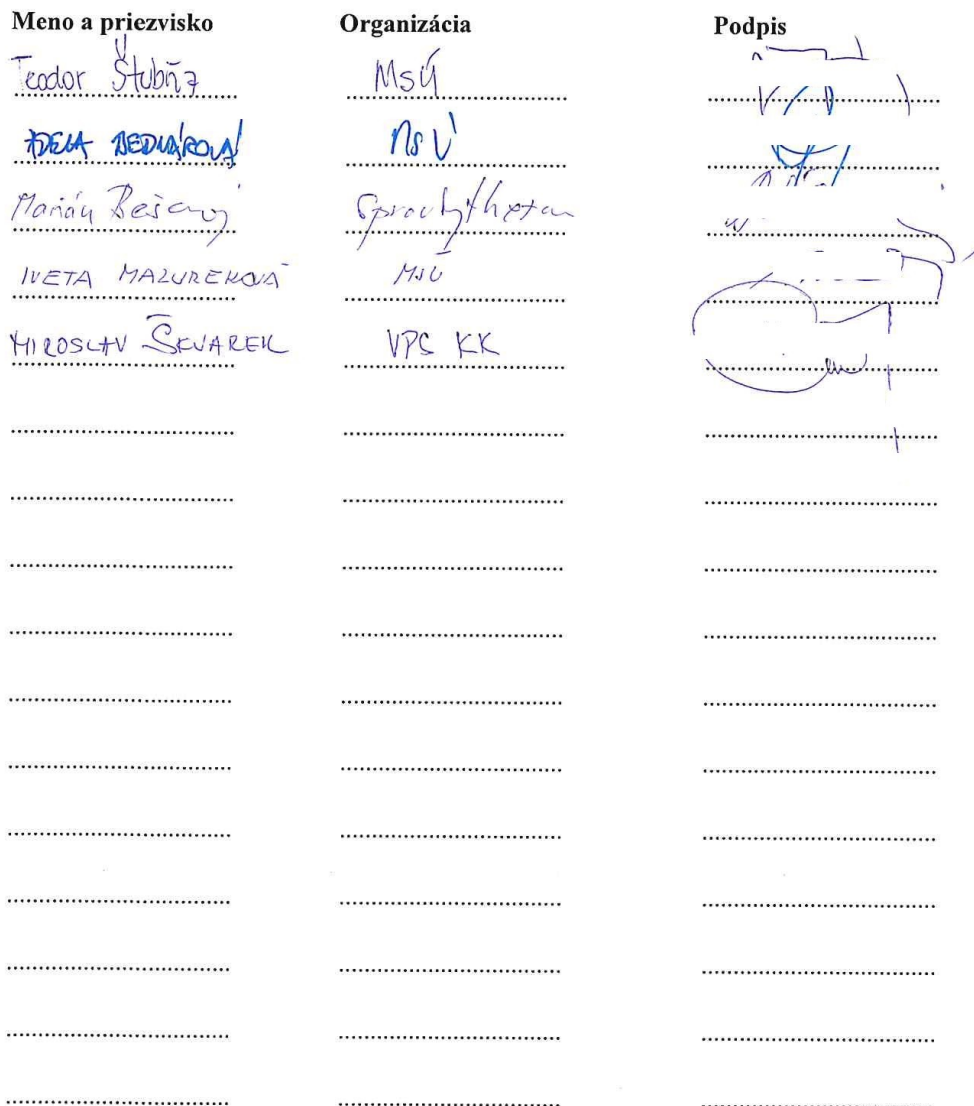 Meno a priezvisko Organizácia Podpis
Teodor Štubňa MsÚ
ADELA BEDNÁROVÁ MsÚ
Marián
IVETA MAZUREKOVÁ MsÚ
MIROSLAV ŠKVAREK VPS KK